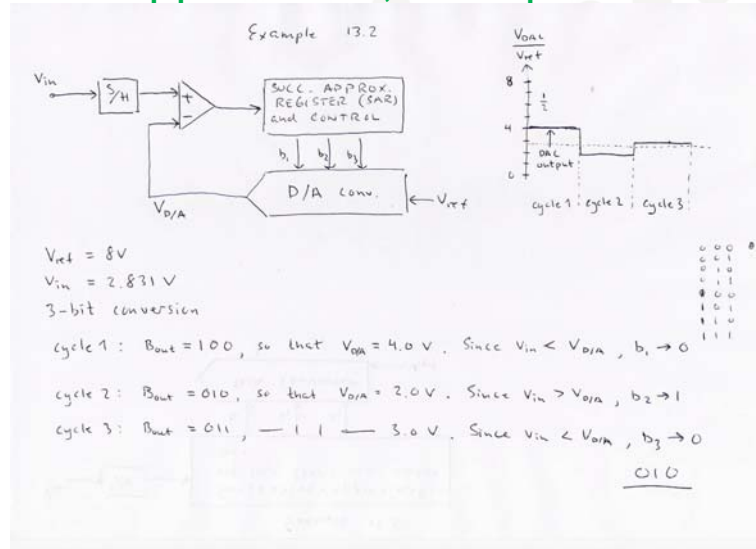 Example 13.2
Vin
S/H
+
-
SUCC. APPROX.
REGISTER (SAR)
and CONTROL
b1 b2 b3
D/A conv.
Vref
VD/A
VDAC
Vref
8
1/2
4
DAC
output
0
cycle 1 cycle 2 cycle 3
Vref = 8V
Vin = 2.831 V
3-bit conversion
0 0 0
0 0 1
0 1 0
0 1 1
1 0 0
1 0 1
1 1 0
1 1 1
cycle 1: Bout = 100, so that VD/A = 4.0 V. Since Vin < VD/A, b1 → 0
cycle 2: Bout = 010, so that VD/A = 2.0 V. Since Vin > VD/A, b2 → 1
cycle 3: Bout = 011, — 1 1 — 3.0 V. Since Vin < VD/A, b3 → 0
010